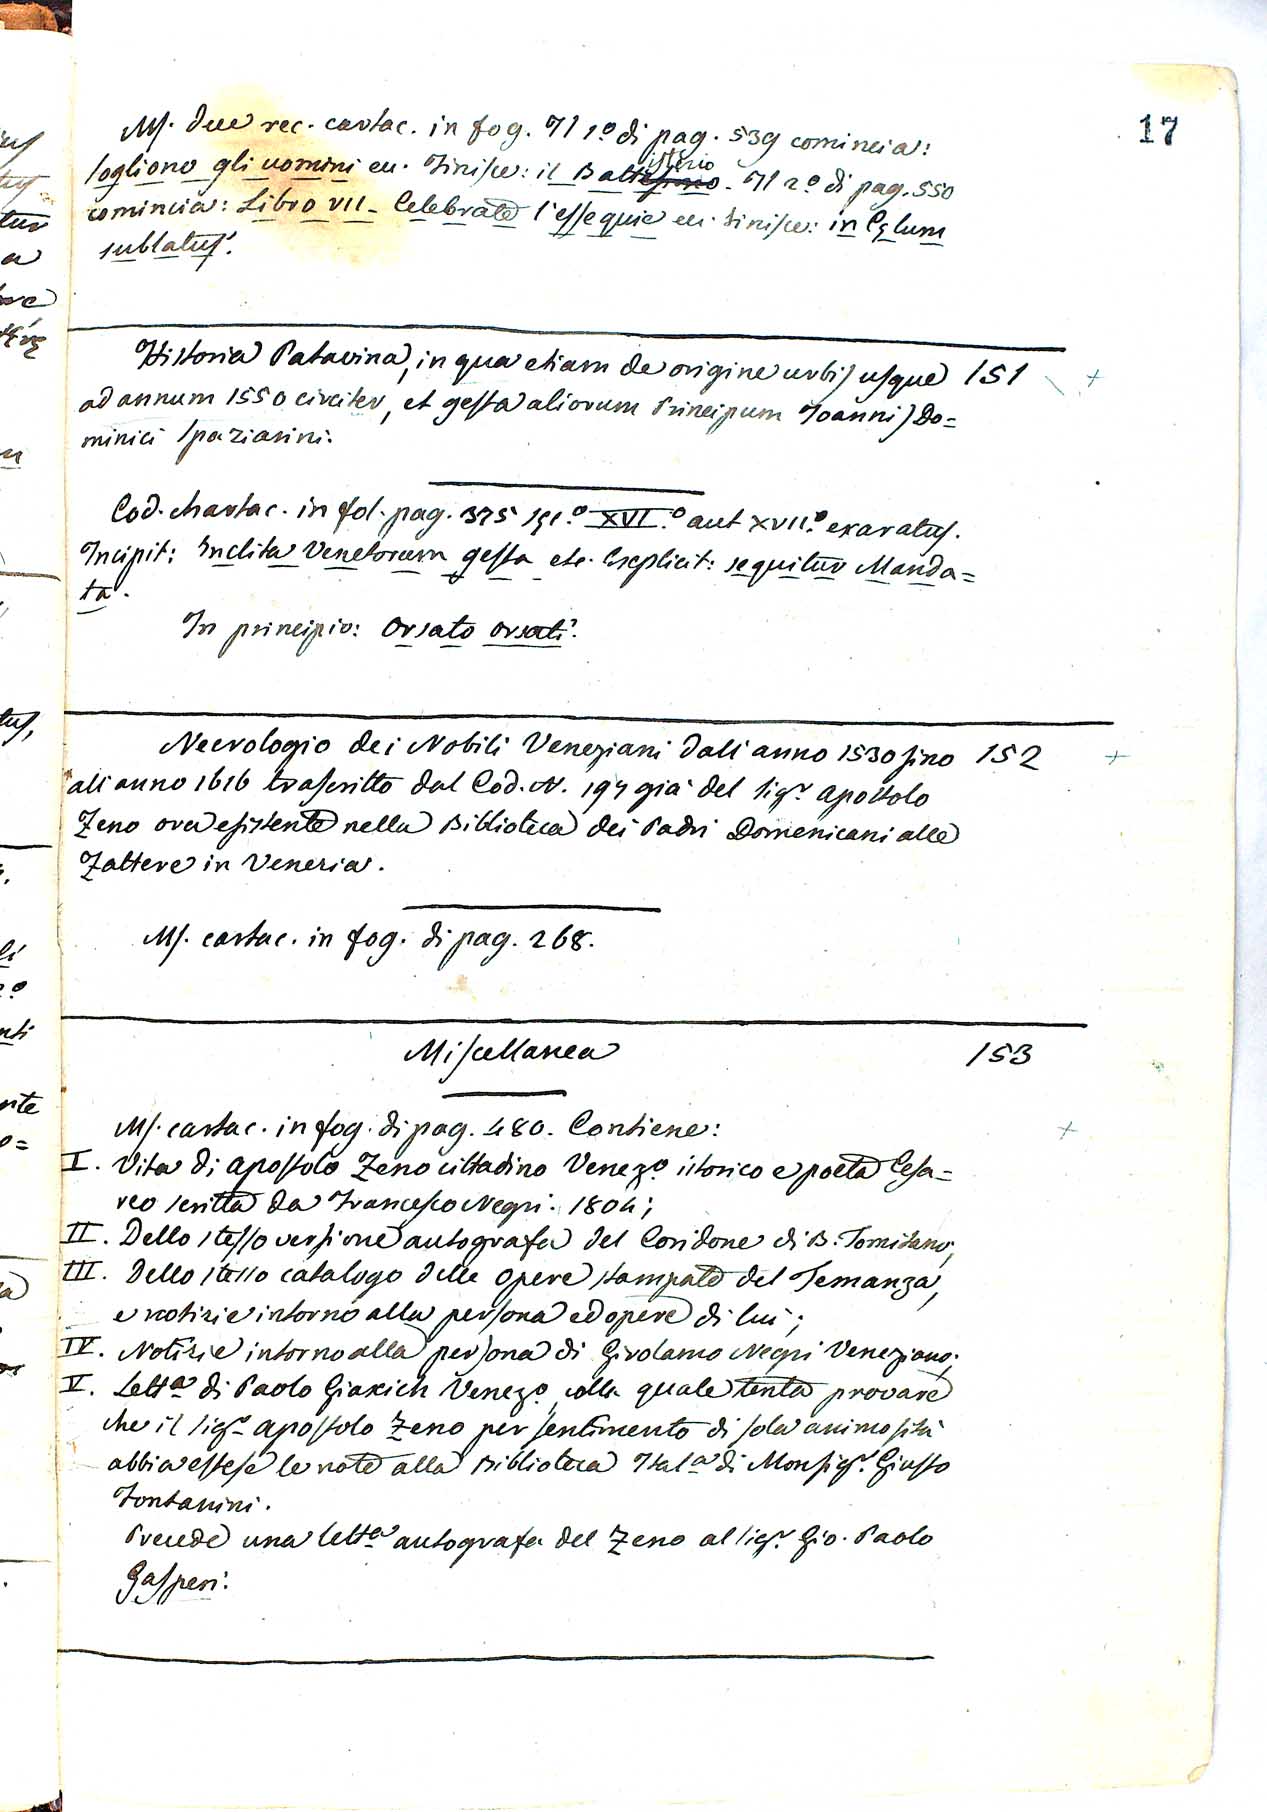 17
Ms. due rec. cartac. in fog. Il 1º di pag. 539 comincia:
sogliono gli uomini ec. Finisce: il Battesimo isterio. Il 2º di pag. 550
comincia: Libro VII. Celebrate l'essequie ec. finisce: in Cęlum
sublatus.
Historia Patavina, in qua etiam de origine urbis usque 151 +
ad annum 1550 circiter, et gesta aliorum Principum Joannis Do=
minici Spaziarini.
Cod. chartac. in fol. pag. 375 sęc.º XVI.º aut XVII.º exaratus.
Incipit: Inclita Venetorum gesta etc. Explicit: sequitur Manda=
ta.
In principio: Orsato Orsati.
Necrologio dei Nobili Veneziani dall'anno 1530 sino 152 +
all'anno 1616 trascritto dal Cod. N. 194 già del sigr. Apostolo
Zeno ora esistente nella Biblioteca dei Padri Domenicani alle
Zattere in Venezia.
Ms. cartac. in fog. di pag. 268.
Miscellanea 153
Ms. cartac. in fog. di pag. 480. Contiene: +
I. Vita di Apostolo Zeno cittadino Venezº. istorico e poeta Cesa=
reo scritta da Francesco Negri. 1804;
II. Dello stesso versione autografa del Coridone di B. Tomitano;
III. Dello stesso catalogo delle opere stampate del Temanza,
e notizie intorno alla persona ed opere di lui;
IV. Notizie intorno alla persona di Girolamo Negri Veneziano;
V. Lettª di Paolo Giakich Venezº. colla quale tenta provare
che il sigr. Apostolo Zeno per sentimento di sola animosità
abbia estese le note alla Biblioteca Italª di Monsigr. Giusto
Fontanini.
Precede una lettª autografa del Zeno al sigr. Gio. Paolo
Gasperi.